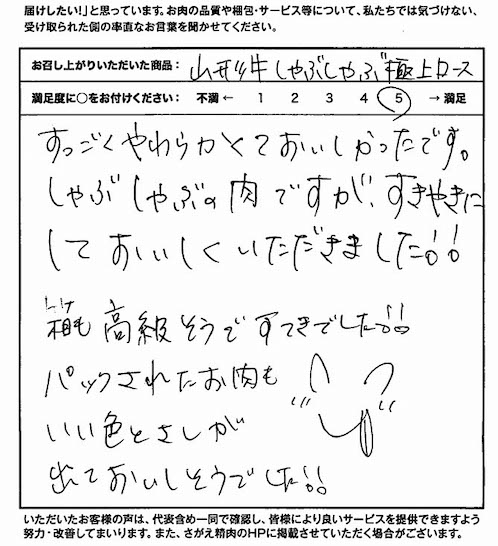 届けしたい!」と思っています。お肉の品質や梱包・サービス等について、私たちでは気づけない、
受け取られた側の率直なお言葉を聞かせてください。
お召し上がりいただいた商品: 山形牛しゃぶしゃぶ極上ロース
満足度に○をお付けください: 不満 ← 1 2 3 4 5 → 満足
すっごくやわらかくておいしかったです。
しゃぶしゃぶの肉ですが、すきやきに
しておいしくいただきました!!
箱も高級そうですてきでした!!
パックされたお肉も
いい色とさしが
出ておいしそうでした!!
いただいたお客様の声は、代表含め一同で確認し、皆様により良いサービスを提供できますよう
努力・改善してまいります。また、さがえ精肉のHPに掲載させていただく場合がございます。